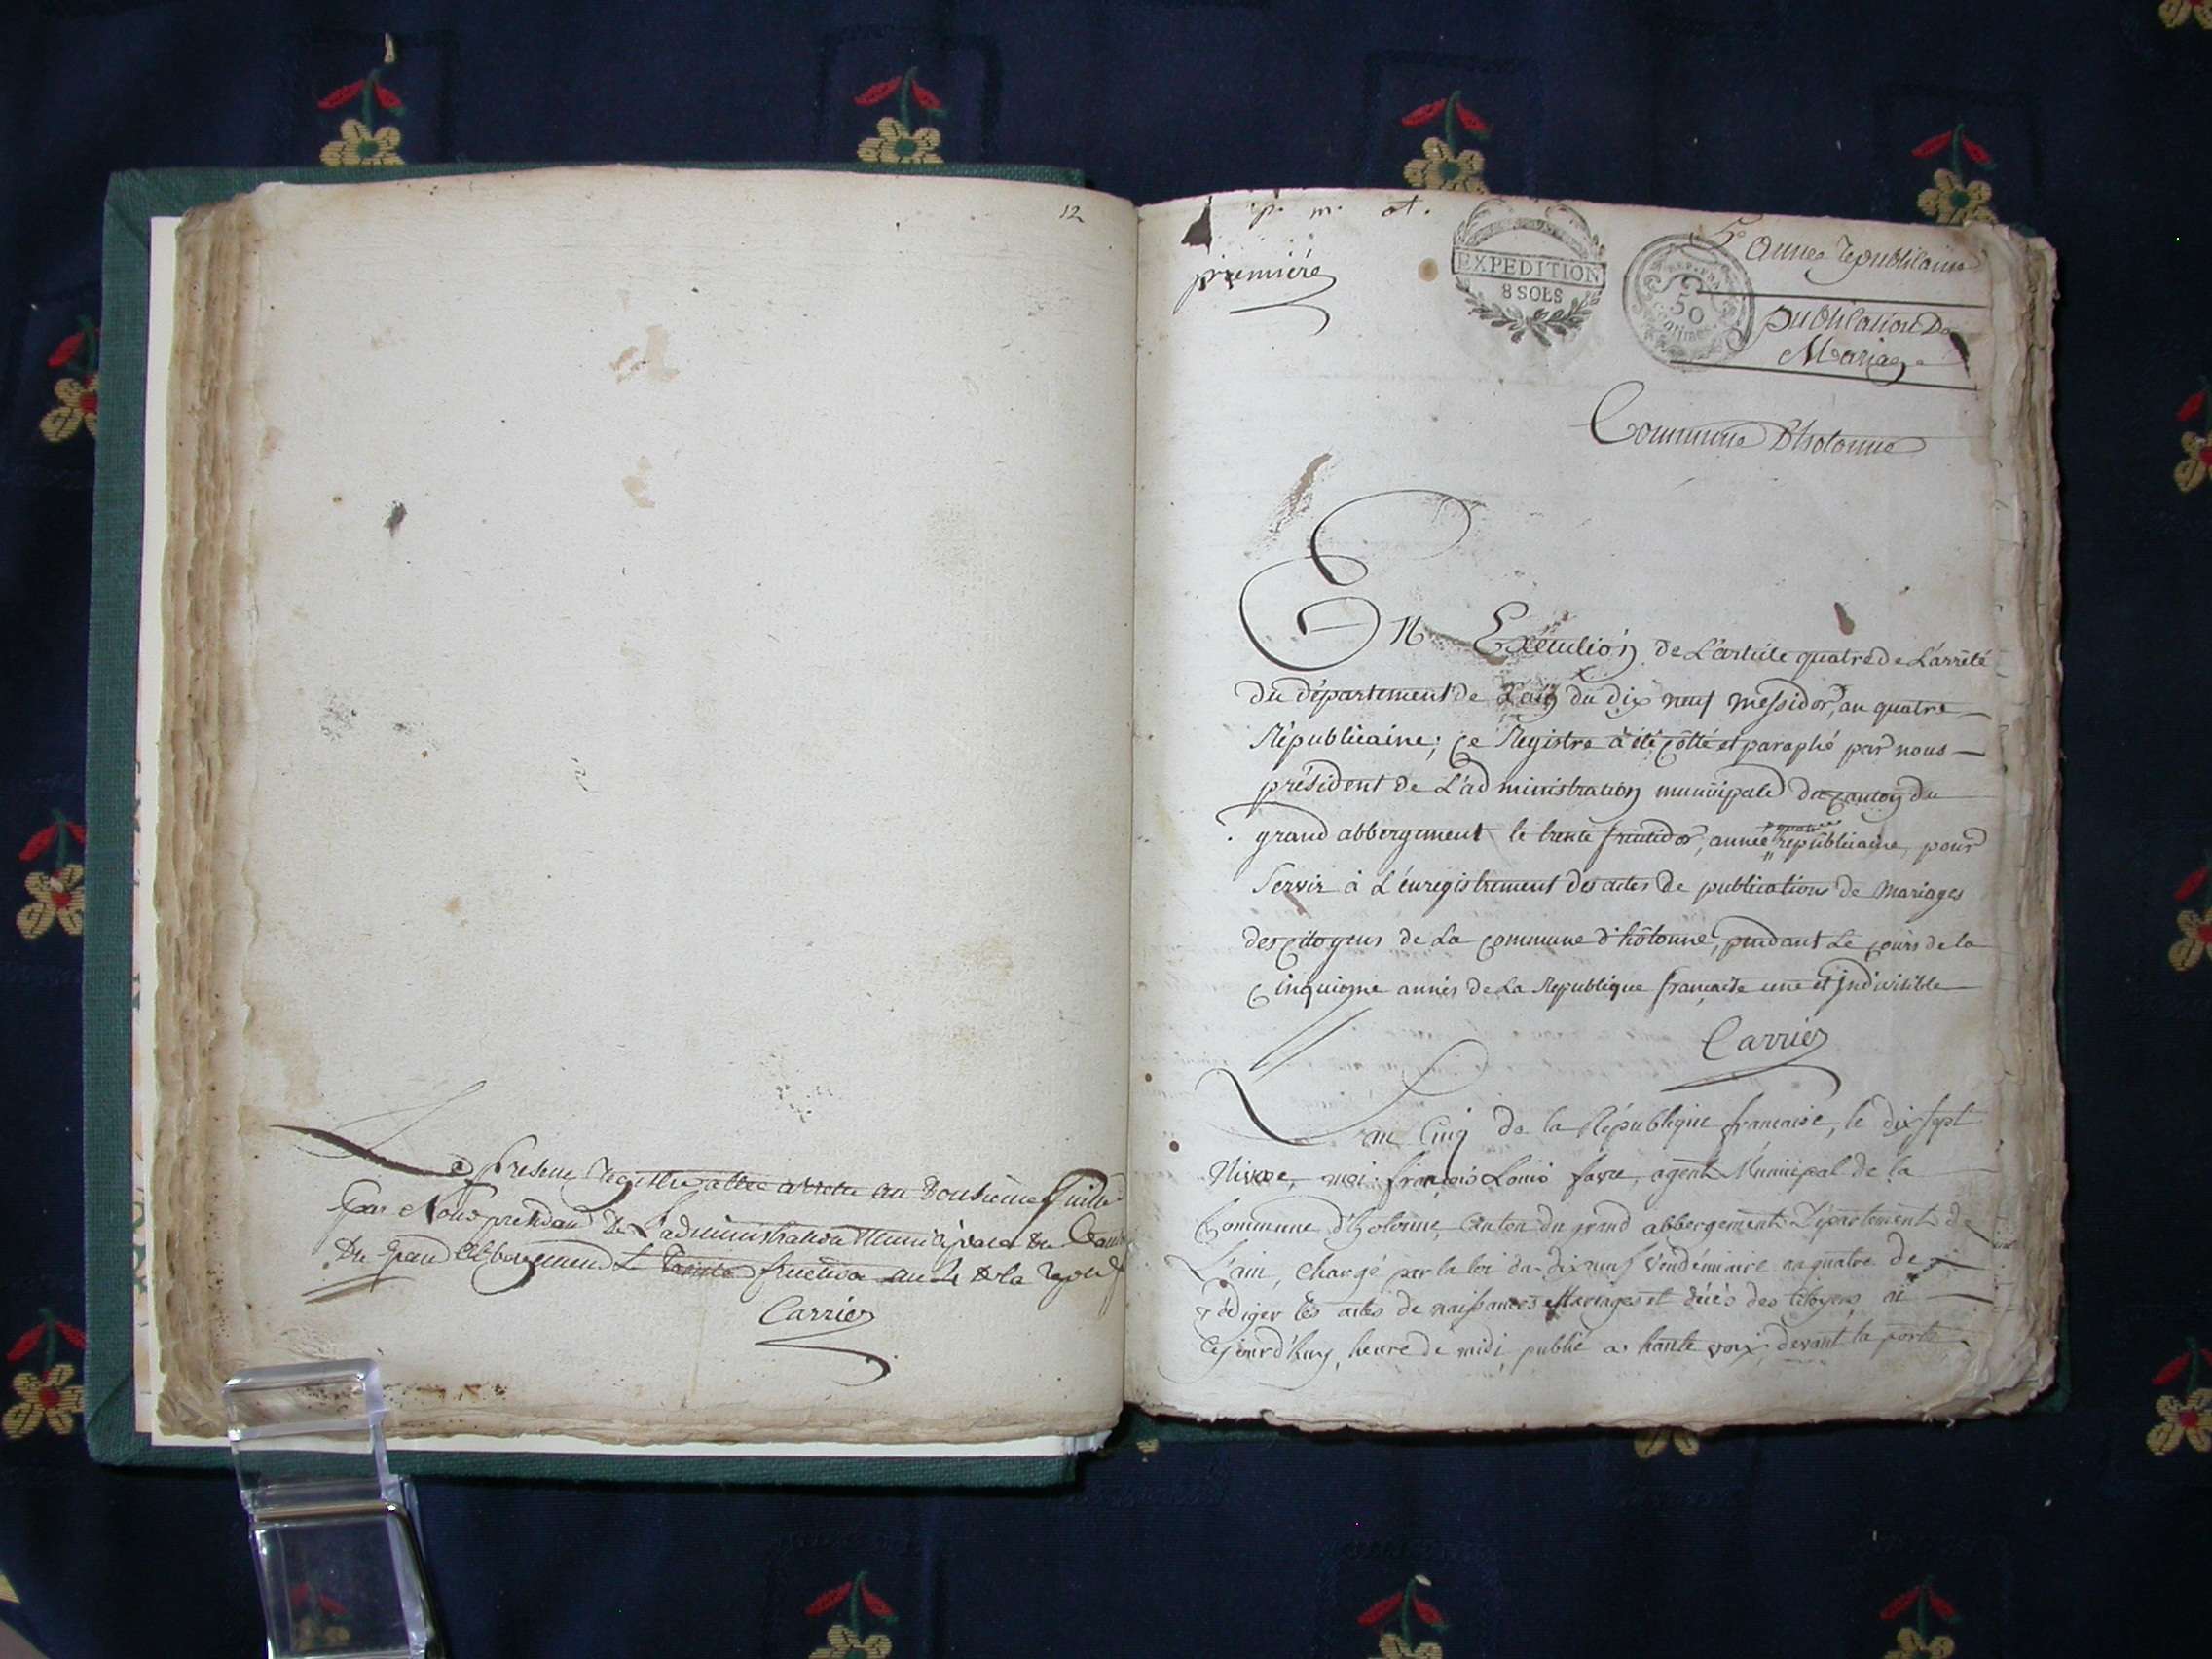 12
Le present Registre a été arreté au Douzieme feuillet
par Nous president De L'administration Municipale Du Canton
Du Grand Abbergement Le trente fructidor an 4 De la Repub f
Carrier
p. m. ot.
premiére
EXPEDITION
8 SOLS
REP. FRA
50
centimes
5e année Republicaine
publication De
Mariage
Commune D'hotonne
EN Exécution de L'article quatre de L'arrêté
du département de L'ain du dix neuf messidor, an quatre
Républicaine; ce Registre à été côtté et paraphé par nous
président de L'administration municipale du canton du
grand abbergement le trente fructidor, année quatre républicaine, pour
Servir à L'énregistrement des actes de publications de Mariages
des citoyens de La commune d'hôtonne, pendant Le cours de la
cinquieme année de La Republique française une et Indivisible
Carrier
L'an Cinq de la République française, le dix sept
Nivose, moi françois Louis favre, agent Municipal de la
Commune d'hotonne, Canton du grand abbergement Département de
L'ain, chargé par la loi du dix neuf Vendémiaire an quatre de
rédiger les actes de naissances Mariages et décès des Citoyens, ai
Cejourd'huy, heure de midi publié a haute voix, devant la porte